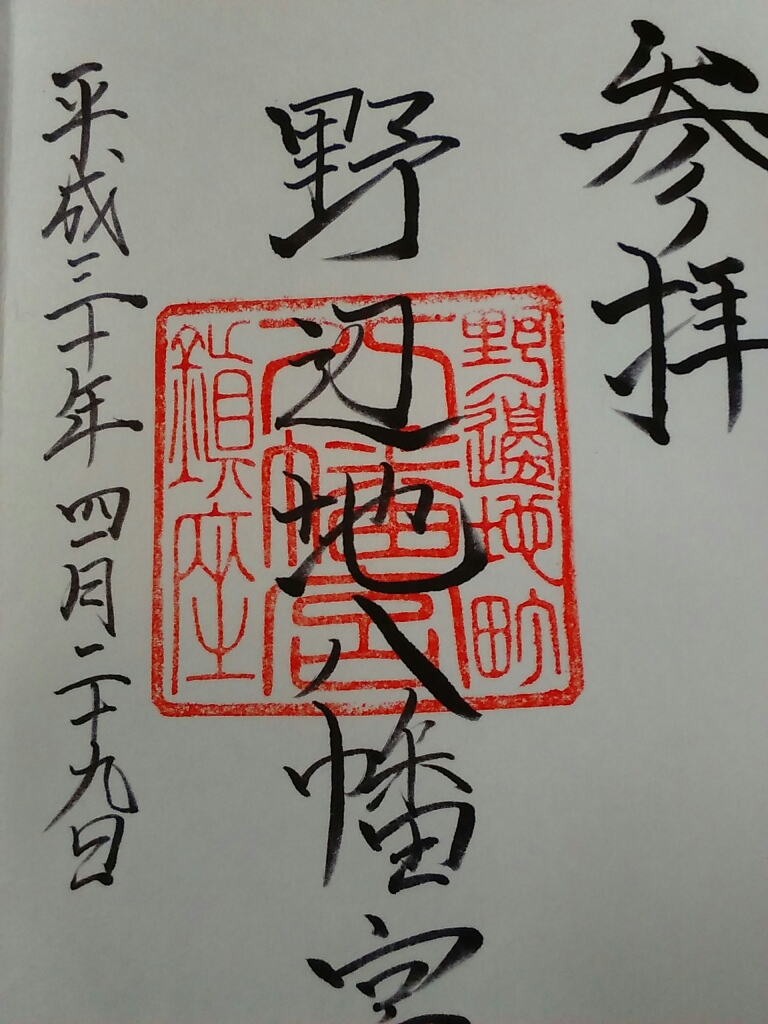 参拝
野辺地八幡宮
野邊地町
八幡宮
鎮座
平成三十年四月二十九日